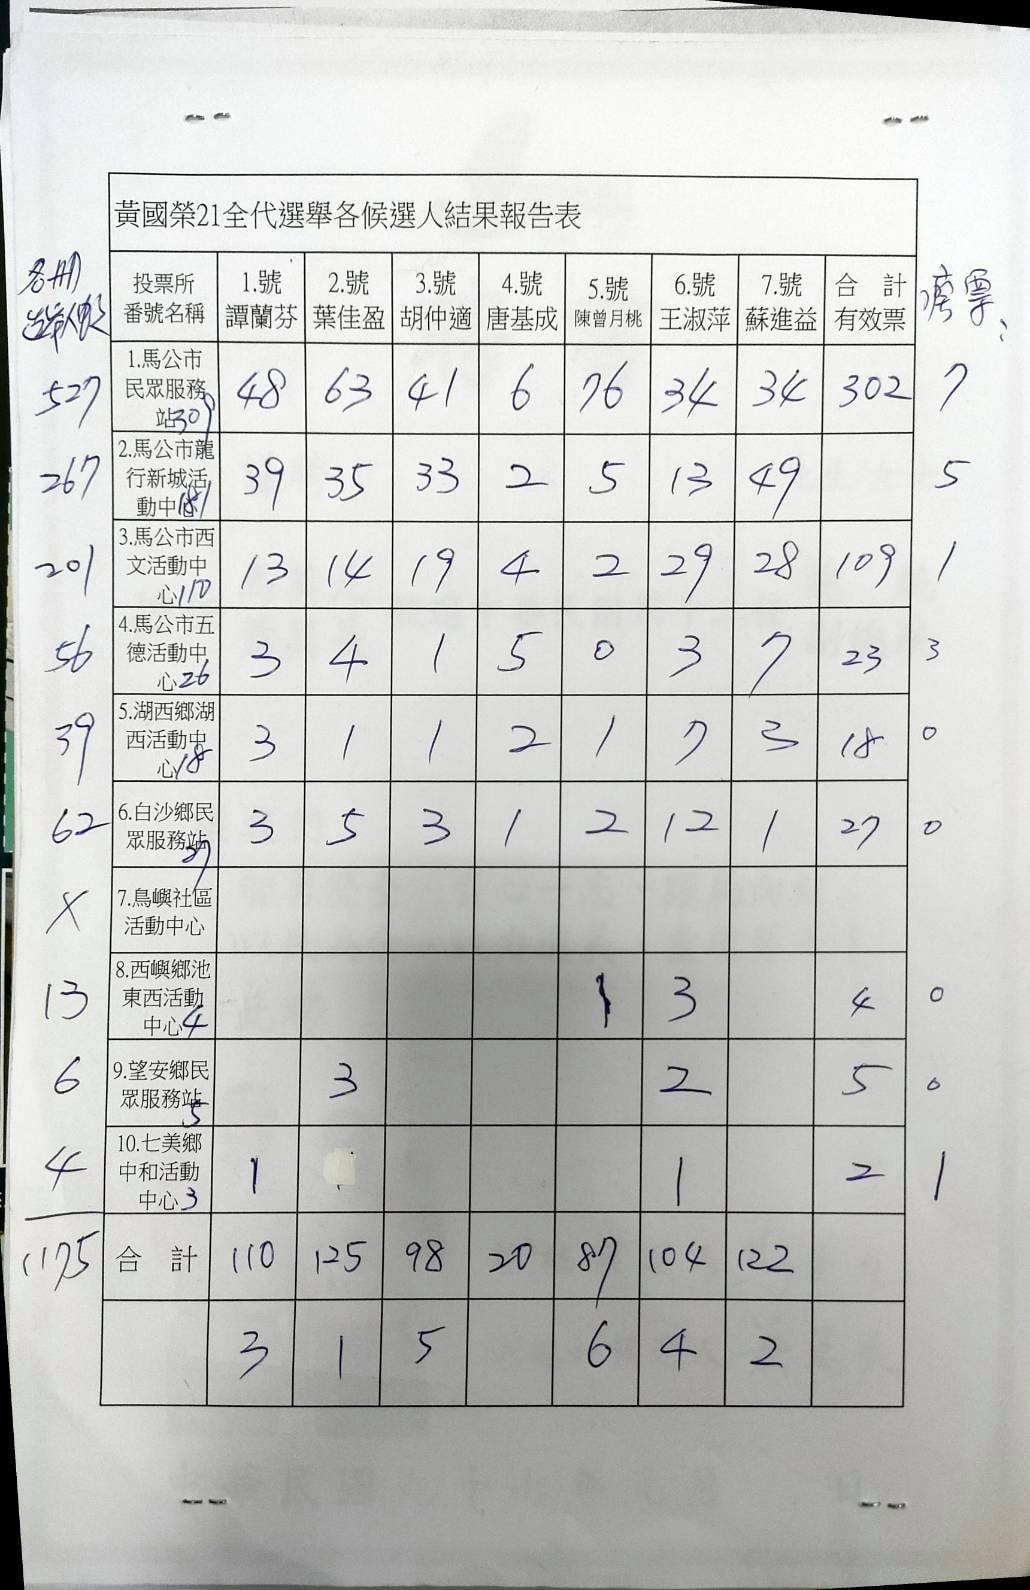 黃國榮21全代選舉各候選人結果報告表
名冊 投票所番號名稱 1.號譚蘭芬 2.號葉佳盈 3.號胡仲適 4.號唐基成 5.號陳曾月桃 6.號王淑萍 7.號蘇進益 合計有效票 廢票
527 1.馬公市民眾服務站309 48 63 41 6 76 34 34 302 7
267 2.馬公市龍行新城活動中心181 39 35 33 2 5 13 49 5
201 3.馬公市西文活動中心110 13 14 19 4 2 29 28 109 1
56 4.馬公市五德活動中心26 3 4 1 5 0 3 7 23 3
39 5.湖西鄉湖西活動中心18 3 1 1 2 1 7 3 18 0
62 6.白沙鄉民眾服務站27 3 5 3 1 2 12 1 27 0
X 7.鳥嶼社區活動中心
13 8.西嶼鄉池東西活動中心4 1 3 4 0
6 9.望安鄉民眾服務站5 3 2 5 0
4 10.七美鄉中和活動中心3 1 1 2 1
1175 合計 110 125 98 20 87 104 122
3 1 5 6 4 2